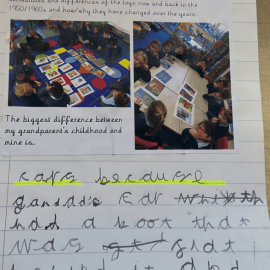 similarities and differences of the toys now and back in the
1950/1960s and how/why they have changed over the years.
The biggest difference between
my grandparent's childhood and
mine is..
cars because
grandad's car
had a boot that
was